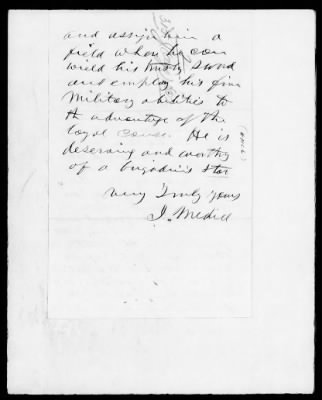 and assign him a
field where he can
wield his trusty sword
and employ his fine
Military abilities to
the advantage of the
loyal cause. He is
deserving and worthy
of a brigadier's star
Very Truly Yours
J. Medill